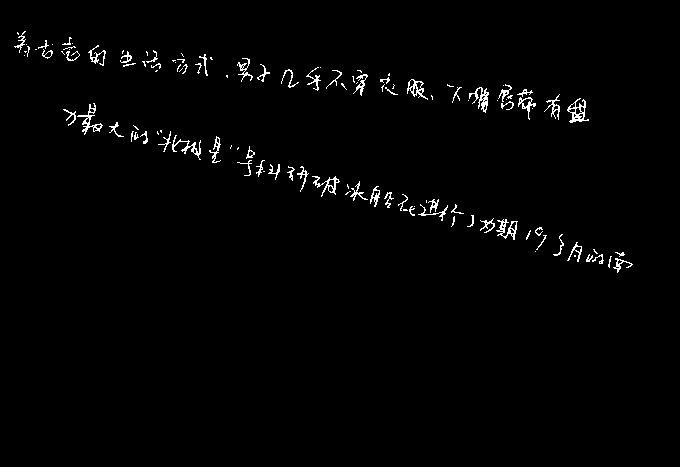 着古老的生活方式，男子几乎不穿衣服、下嘴唇带有盘
为最大的“北极星”号科研破冰船已进行了为期19个月的南